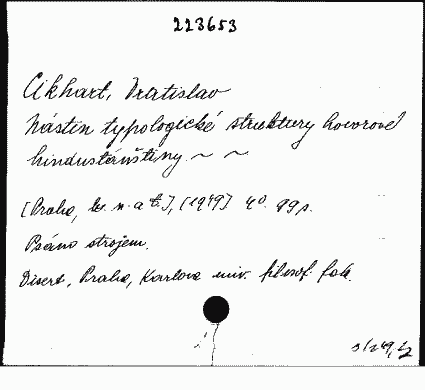 223653
Cikhart, Vratislav
Nástin typologické struktury hovorové
hindustánštiny. ~ ~
[Praha, b. n. a t.], [1949] 4°. 99 s.
Psáno strojem.
Disert., Praha, Karlova univ. filosof. fak.